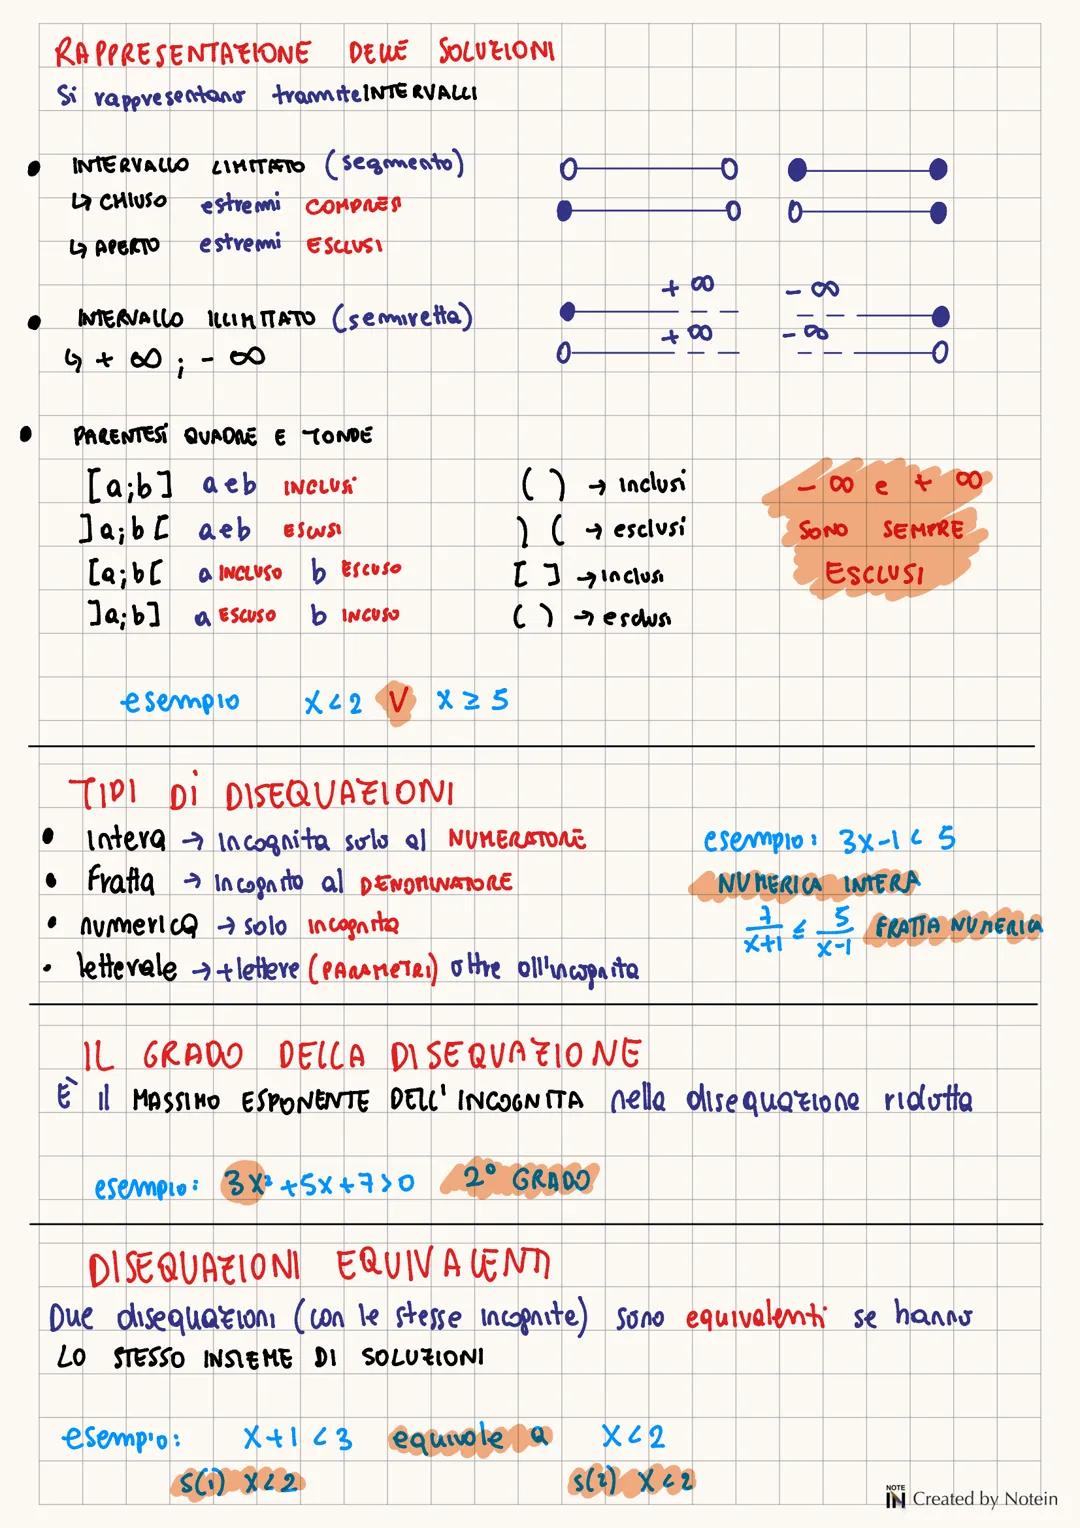 RAPPRESENTAZIONE DELLE SOLUZIONI
Si rappresentano tramite INTERVALLI
• INTERVALLO LIMITATO (segmento)
↳ CHIUSO estremi COMPRESI
↳ APERTO estremi ESCLUSI
+ ∞ - ∞
• INTERVALLO ILLIMITATO (semiretta)
+ ∞ - ∞
↳ + ∞ ; - ∞
• PARENTESI QUADRE E TONDE
[a;b] a e b INCLUSI ( ) → inclusi - ∞ e + ∞
]a;b[ a e b ESCLUSI ) ( → esclusi SONO SEMPRE
[a;b[ a INCLUSO b ESCLUSO [ ] → inclusi ESCLUSI
]a;b] a ESCLUSO b INCLUSO ( ) → esclusi
esempio x<2 V x ≥ 5
TIPI Di DISEQUAZIONI
• intera → incognita solo al NUMERATORE esempio: 3x-1 < 5
• fratta → incognito al DENOMINATORE NUMERICA INTERA
• numerica → solo incognita 7/x+1 ≤ 5/x-1 FRATTA NUMERICA
• letterale → + lettere (PARAMETRI) oltre all'incognita
IL GRADO DELLA DISEQUAZIONE
È il MASSIMO ESPONENTE DELL'INCOGNITA nella disequazione ridotta
esempio: 3x²+5x+7>0 2° GRADO
DISEQUAZIONI EQUIVALENTI
Due disequazioni (con le stesse incognite) sono equivalenti se hanno
LO STESSO INSIEME DI SOLUZIONI
esempio: x+1 <3 equivale a x<2
S(1) x<2 S(2) x<2
NOTE IN Created by Notein